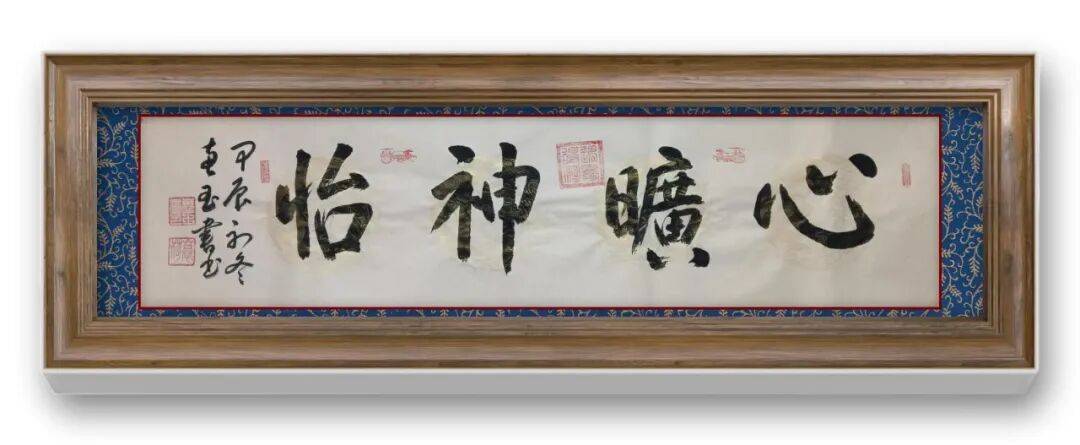 心曠神怡
甲辰初冬
書